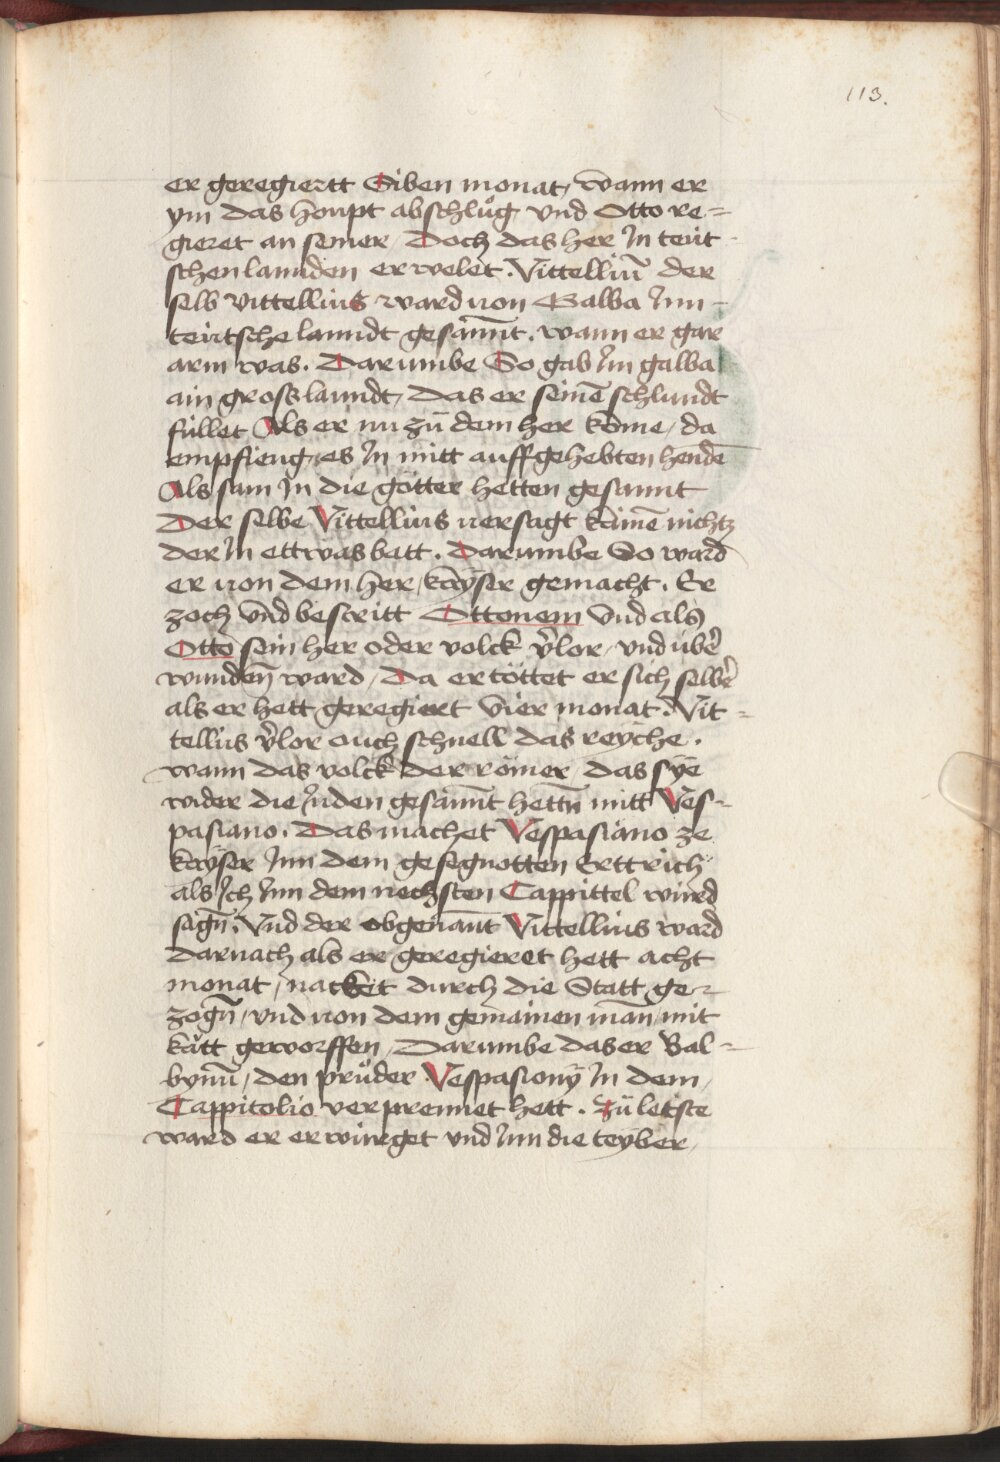 113.
er geregiertt Siben monat, wann er
ym das houpt abschlůg vnd Otto re=
gieret an seiner / Doch das her Jn teüt-
schen lannden erwelet. Vittelliū der
selb vittellius ward von Galba Jnn-
teütsche lanndt gesannt. wann er gar
arm was. Darumbe So gab Jm galba
ain gross lanndt, das er seinē schlundt
füllet Als er nu zů dem her kome, da
empfieng es Jn mitt auffgehebten hendē
Als sam Jn die götter hetten gesannt
Der selbe Vittellius versagt kainē nichtz
der Jn ettwas batt. Darumbe So ward
er von dem her, kayser gemacht. Er
zoch vnd bestritt Ottonem vnd als
Otto sein her oder volck v̉lor, vnd übe᷑
wunden̄ ward / Da er töttet er sich selbe᷑
als er hett geregiert vier monat. Vit=
tellius v̉lor ouch schnell das reyche.
wann das volck der römer das sye
wider die Juden gesannt hettn̄ mitt Ves-
pasiano. Das machet Vespasiano ze
kayser Jnn dem gesegnotten Erttrich
als Jch Jnn dem nechsten Cappittel würd
sagn̄. Vnd der obgenannt Vittellius ward
darnach als er geregieret hett acht
monat, nackett durch die Statt ge-
zogn̄, vnd von dem gemainen man, mit
kätt geworffen, Darumbe das er Bal=
bynū, den průder Vespasiony Jn dem
Cappitolio verprennet hett. Zů letste
ward er erwürget vnd Jnn die teyber,